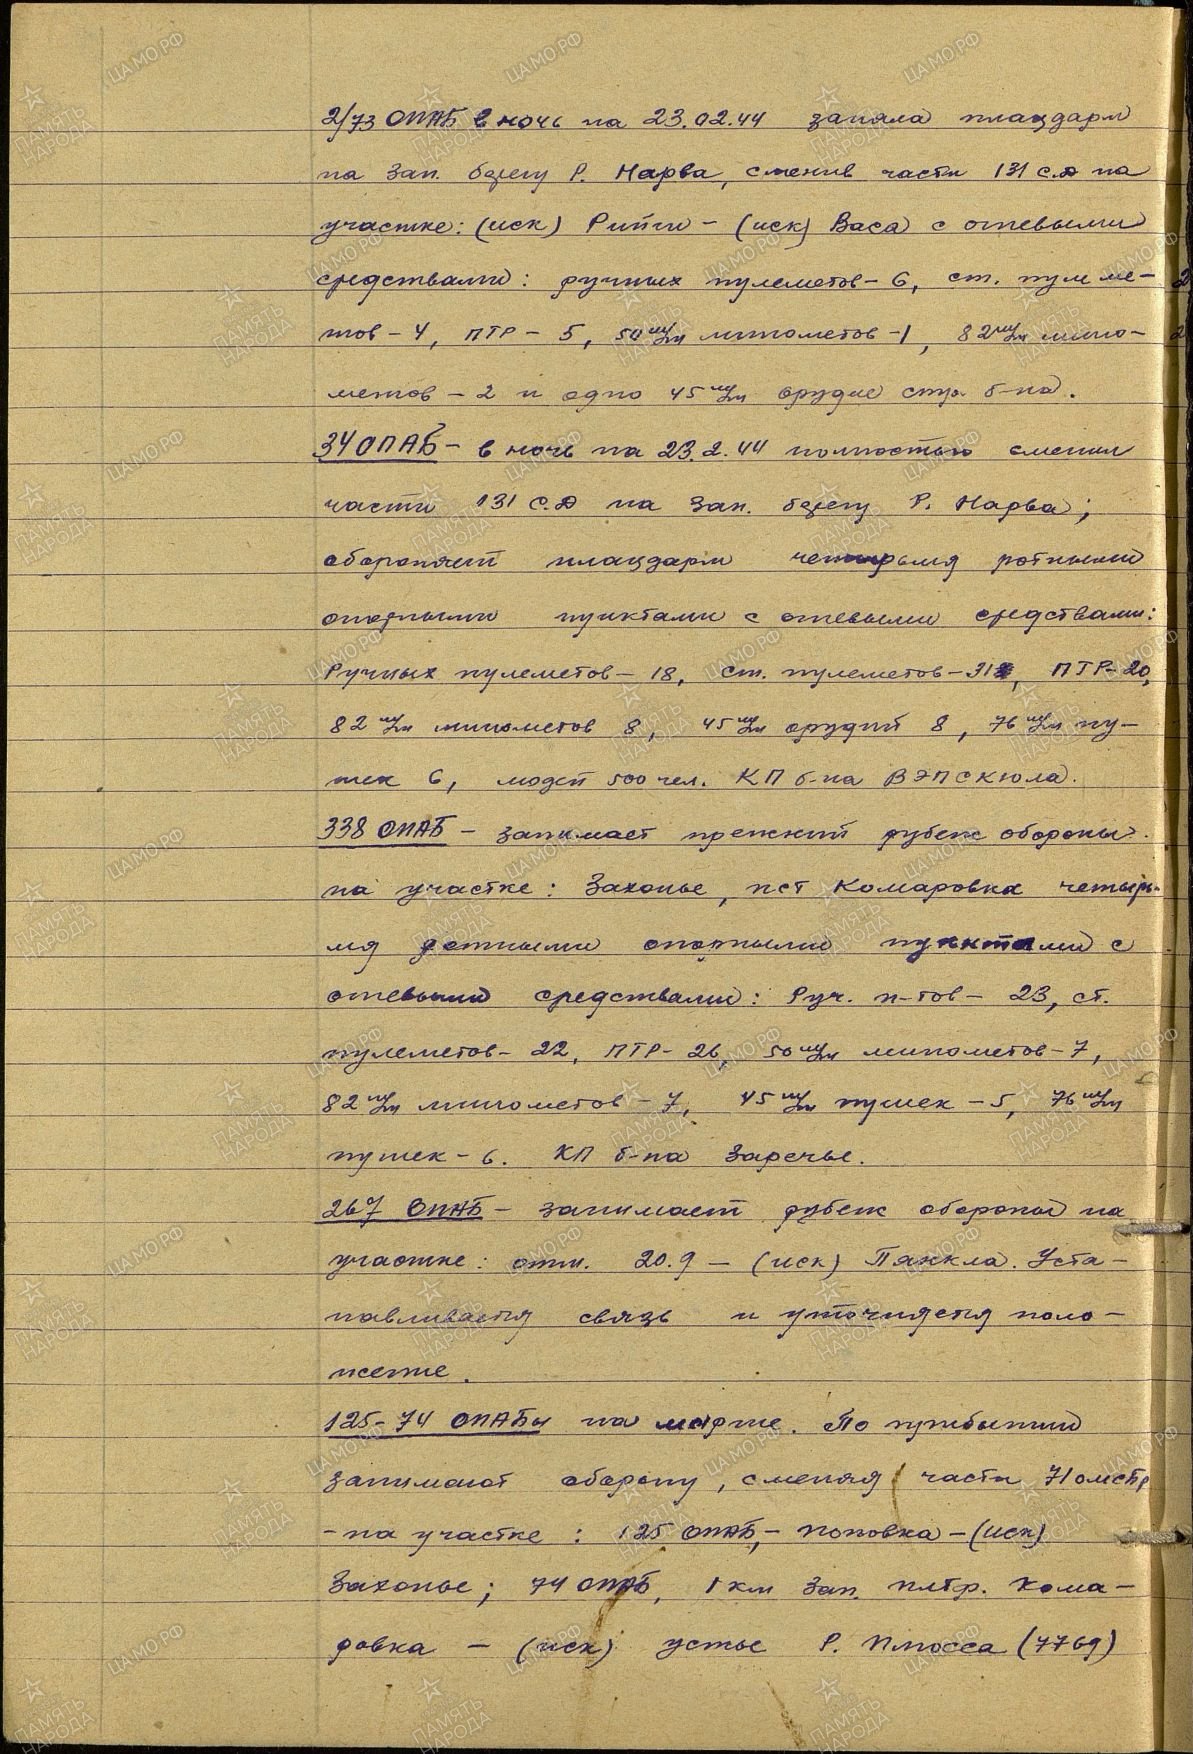 2/73 ОПАБ в ночь на 23.02.44 заняла плацдарм
на зап. берегу р. Нарва, сменив части 131 с.д на
участке: (иск) Рийги - (иск) Васа с огневыми
средствами: ручных пулеметов - 6, ст. пулеме-
тов - 4, ПТР - 5, 50 м/м минометов - 1, 82 м/м мино-
метов - 2 и одно 45 м/м орудие стр. б-на.
34 ОПАБ - в ночь на 23.2.44 полностью сменил
части 131 с.д на зап. берегу р. Нарва;
обороняет плацдарм четырьмя ротными
опорными пунктами с огневыми средствами:
Ручных пулеметов - 18, ст. пулеметов - 31, ПТР - 20,
82 м/м минометов 8, 45 м/м орудий 8, 76 м/м пу-
шек 6, людей 500 чел. КП б-на ВЭПСКЮЛА.
338 ОПАБ - занимает прежний рубеж обороны
на участке: Захонье, пст Комаровка четырь-
мя ротными опорными пунктами с
огневыми средствами: Руч. п-тов - 23, ст.
пулеметов - 22, ПТР - 26, 50 м/м минометов - 7,
82 м/м минометов - 7, 45 м/м пушек - 5, 76 м/м
пушек - 6. КП б-на Заречье.
267 ОПАБ - занимает рубеж обороны на
участке: отм. 20.9 - (иск) Пяккла. Уста-
навливается связь и уточняется поло-
жение.
125-74 ОПАБы на марше. По прибытии
занимают оборону, сменяя части 71 омстр
- на участке: 125 ОПАБ, - Поповка - (иск)
Захонье; 74 ОПАБ, 1 км зап. платр. Кома-
ровка - (иск) устье р. Плюсса (7769)
ПАМЯТЬ НАРОДА
ЦАМО.РФ